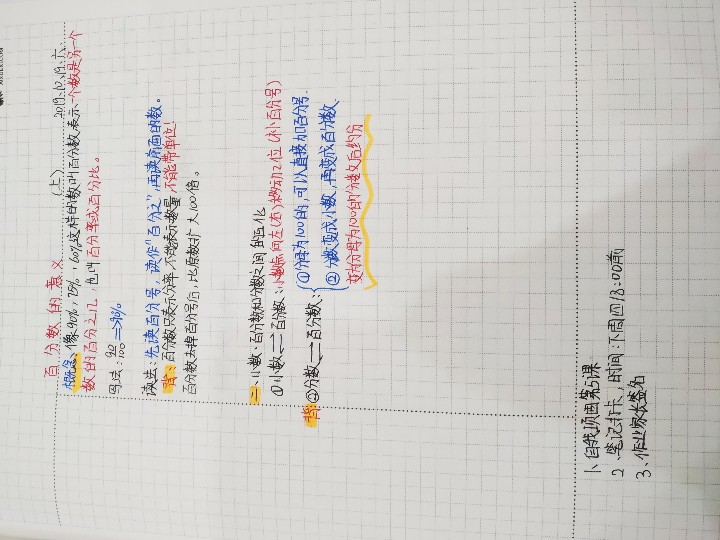 百分数的意义(上) 2019.10.19.六.
概念:像90%,75%,60%这样的数叫百分数,表示一个数是另一个
数的百分之几,也叫百分率或百分比。
写法:90/100⇒90%
读法:先读百分号,读作"百分之",再读前面的数。
背:百分数只表示分率,不能表示数量,不能带单位!
百分数去掉百分号后,比原数扩大100倍。
二、小数、百分数和分数之间的互化
①小数⇌百分数:小数点向左(右)移动2位(补百分号)
背:②分数⇌百分数:①分母为100的,可以直接加百分号
②分数变成小数,再变成百分数
变为分母为100的分数文后约分
1、自我巩固第5课
2、笔记打卡,时间:下周四18:00前
3、作业家长签名